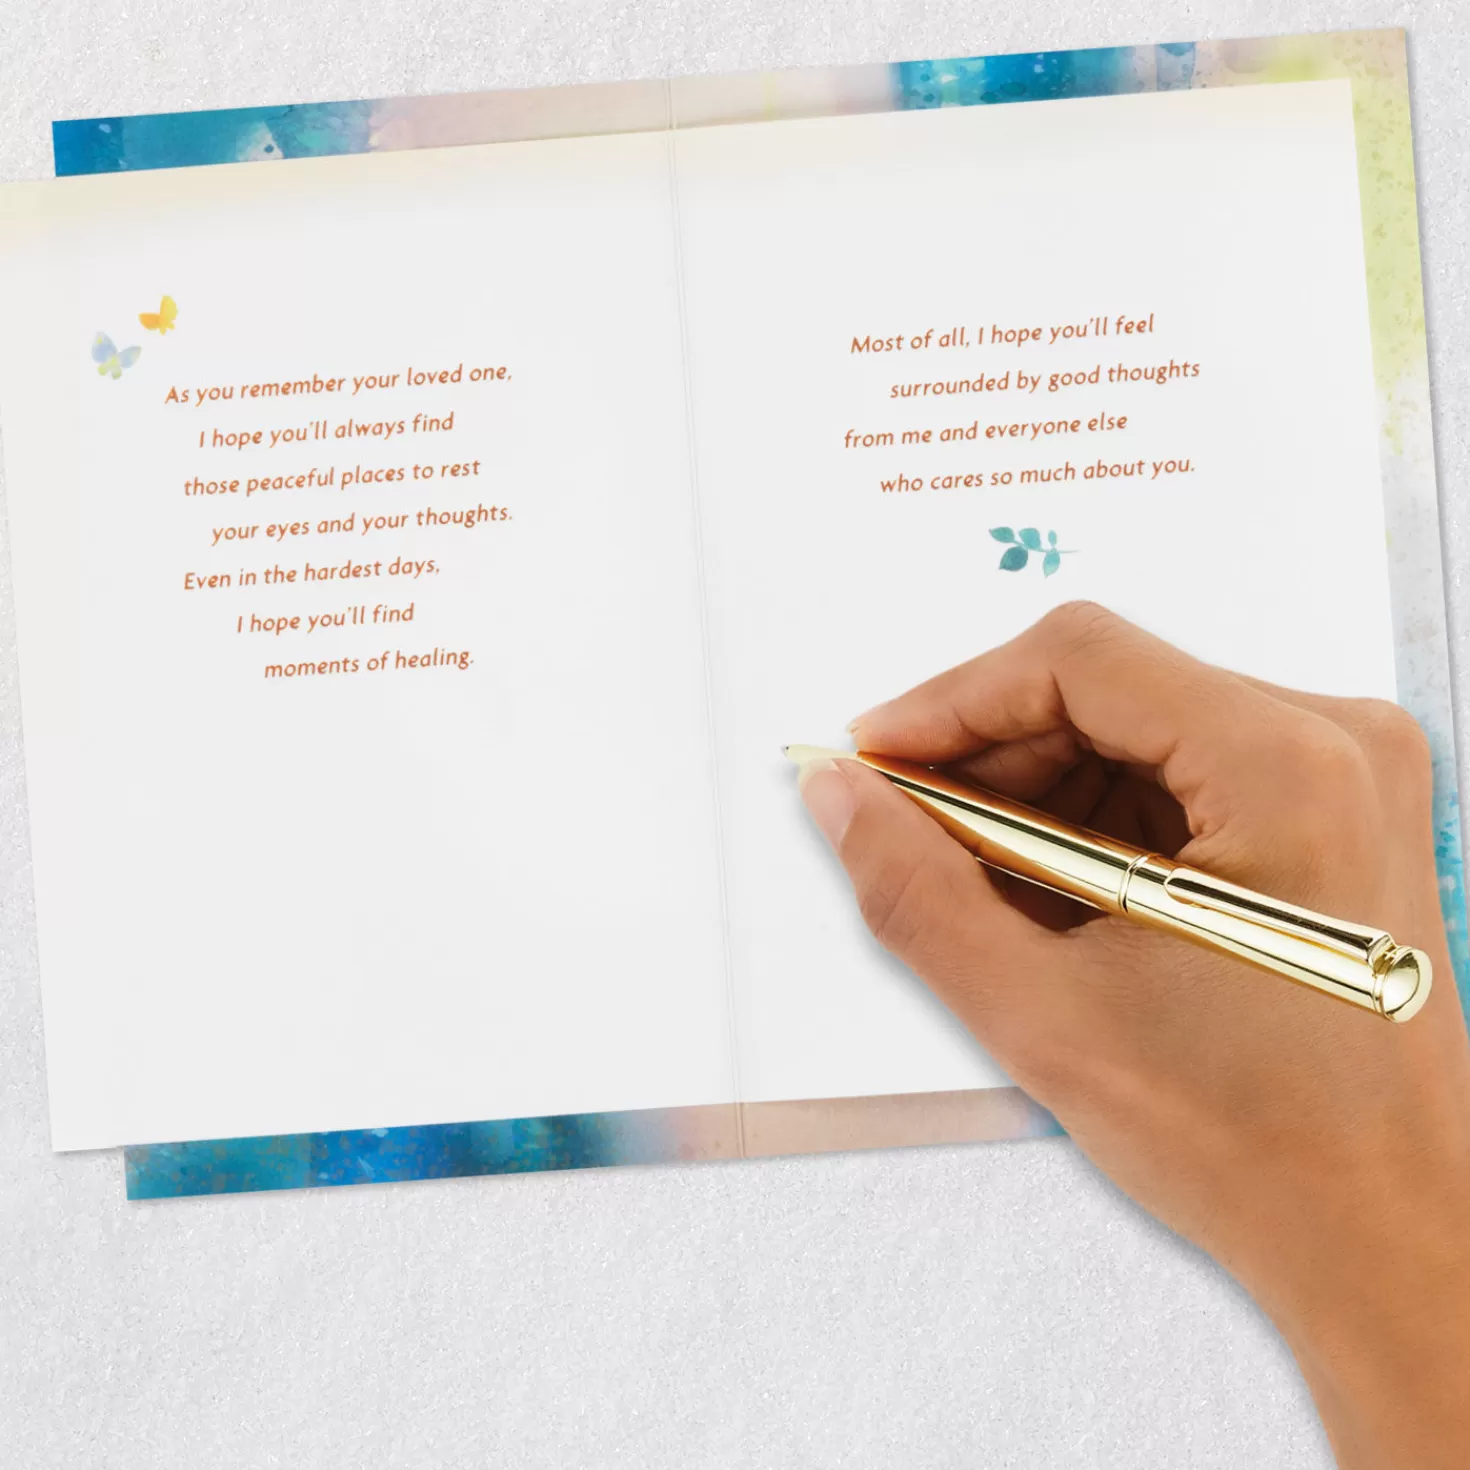 As you remember your loved one,
I hope you'll always find
those peaceful places to rest
your eyes and your thoughts.
Even in the hardest days,
I hope you'll find
moments of healing.
Most of all, I hope you'll feel
surrounded by good thoughts
from me and everyone else
who cares so much about you.